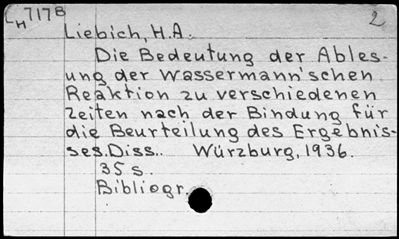 LH 717B
2
Liebich, H.A.
Die Bedeutung der Ables-
ung der Wassermann'schen
Reaktion zu verschiedenen
Zeiten nach der Bindung für
die Beurteilung des Ergebnis-
ses. Diss.. Würzburg, 1936.
35 s.
Bibliogr.